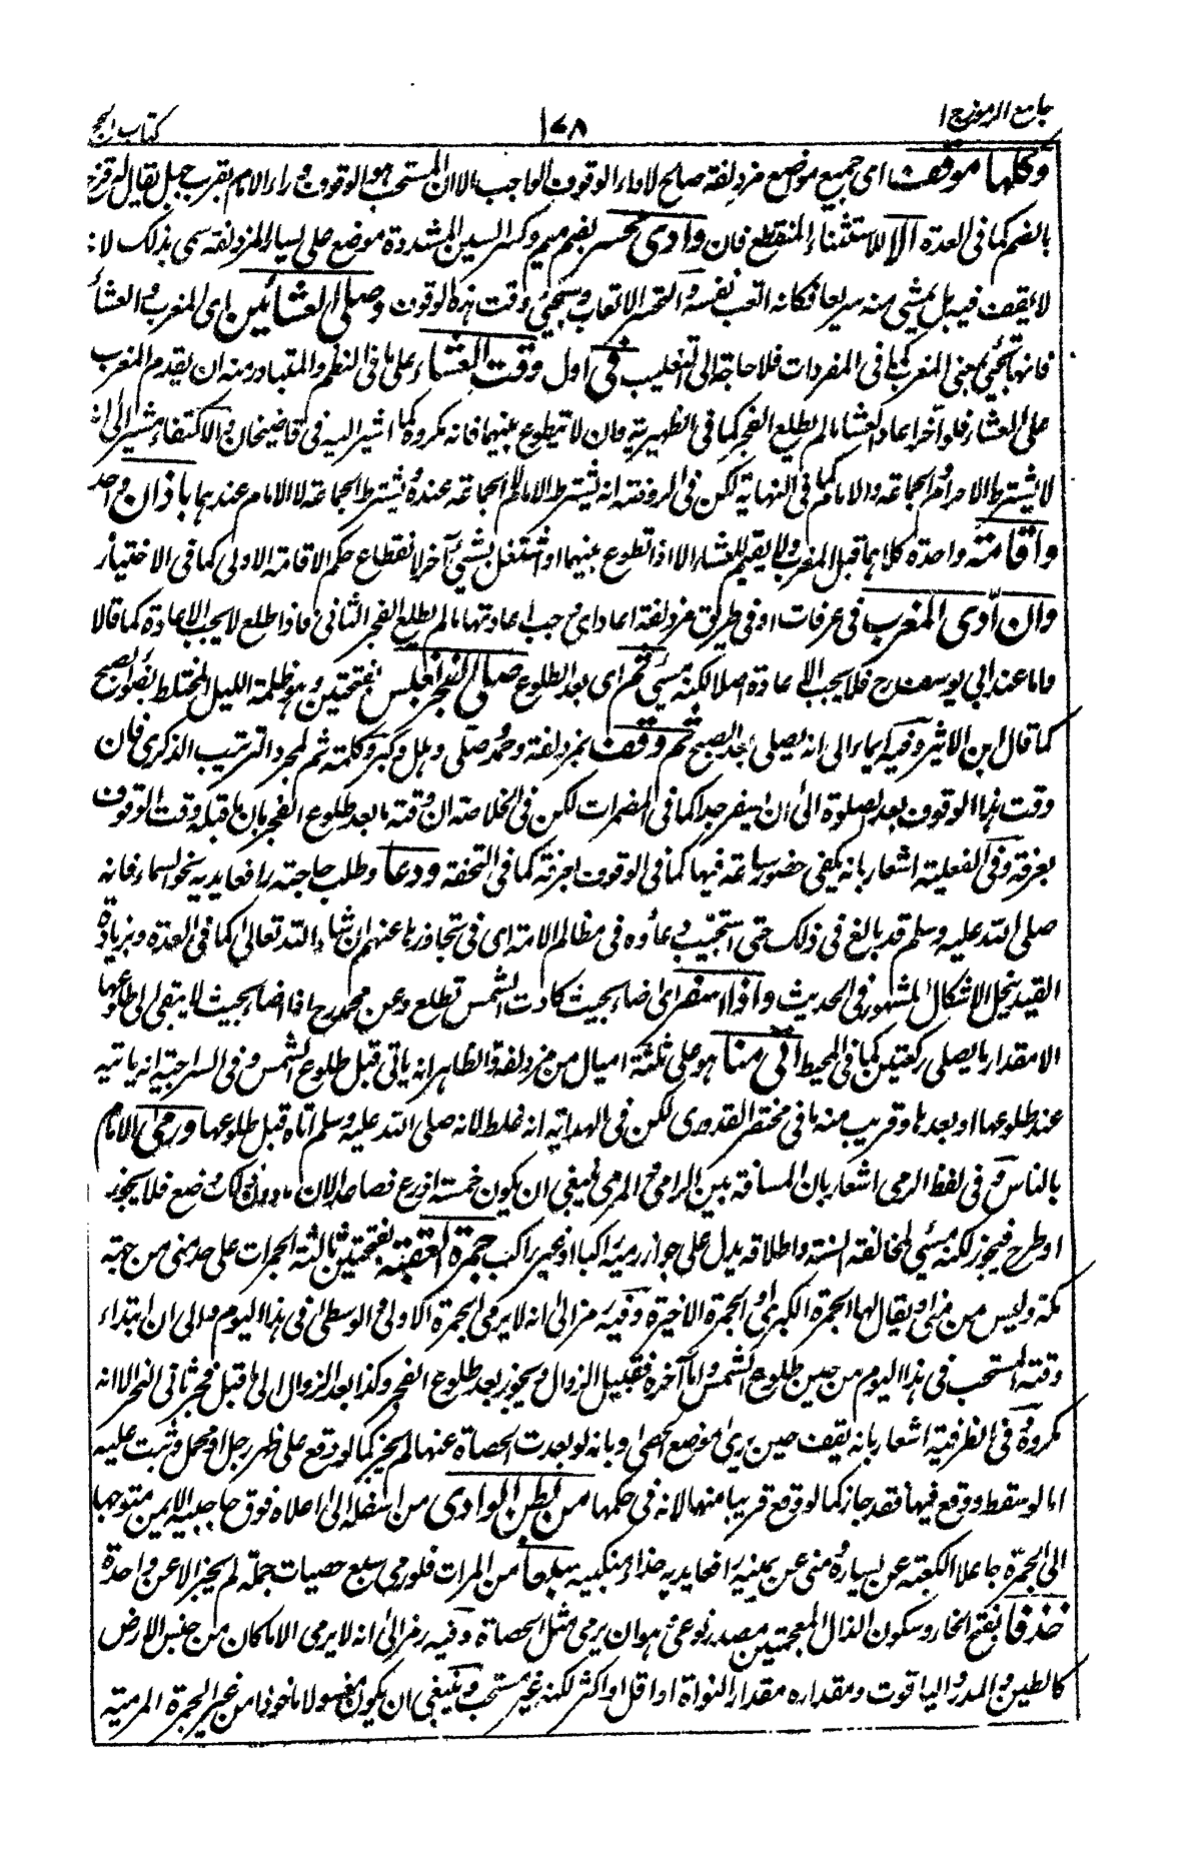 جامع الرموز ج ١
١٧٨
كتاب الحج
وكلها موقف اى جميع موضع مزدلفة صالح لاداء الوقوف الواجب الا ان المستحب هو الوقوف وراء الامام بقرب جبل يقال له قزح
بالضم كما فى العدة الا للاستثناء المنقطع فان وادى محسر بضم ميم وكسر السين المشددة موضع على يسار المزدلفة سمى بذلك لانه
لا يقف فيه بل يمشى منه سريعا فكانه اتعب نفسه والتحسر الاتعاب وسيجئ وقت هذه الوقوف وصلى العشائين اى المغرب والعشاء
فانها تجئ بمعنى المغرب كما فى المفردات فلا حاجة الى التغليب فى اول وقت العشاء على ما فى النظم والمتبادر منه ان يقدم المغرب
على العشاء فلو اخر اعاد العشاء ما لم يطلع الفجر كما فى الظهيرية وان لا يتطوع بينهما فانه مكروه كما اشير اليه فى قاضيخان والاكتفاء مشير الى انه
لا يشترط الاحرام والجماعة والامام كما فى النهاية لكن فى الروضة انه يشترط الامام والجماعة عنده ويشترط الجماعة لا الامام عندهما باذان واحد
واقامة واحدة كلاهما قبل المغرب ولا يقيم للعشاء الا اذا تطوع بينهما او اشتغل بشئ آخر لانقطاع حكم الاقامة الاولى كما فى الاختيار
وان ادى المغرب فى عرفات او فى طريق مزدلفة اعاد اى وجب اعادتها ما لم يطلع الفجر الثانى فاذا طلع لا يجب الاعادة كما قالا
واما عند ابى يوسف رح فلا يجب الاعادة اصلا لكنه مسئ ثم اى بعد الطلوع صلى الفجر بغلس بفتحتين وهو ظلمة الليل المختلط بضوء الصبح
كما قال ابن الاثير وفيه ايماء الى انه يصلى بعد الصبح ثم وقف بمزدلفة وحمد وصلى وهلل وكبر وكلمة ثم لمجرد الترتيب الذكرى فان
وقت هذا الوقوف بعد الصلوة الى ان يسفر جدا كما فى المضمرات لكن فى الخلاصة ان وقته ما بعد طلوع الفجر بان قبله وقت الوقوف
بعرفة وفى الفعلية اشعار بانه يكفى حضور ساعة فيها كما فى الوقوف بعرفة كما فى التحفة ودعا وطلب حاجته رافعا يديه نحو السماء فانه
صلى الله عليه وسلم قد بالغ فى ذلك حتى استجيب دعاؤه فى مظالم الامة اى فى تجاوزها عنهم ان شاء الله تعالى كما فى العدة وبزيادة
القيد ينحل الاشكال المشهور فى الحديث واذا اسفر اى اضاء بحيث كادت الشمس تطلع وعن محمد رح اذا اضاء بحيث لا يبقى الى طلوعها
الا مقدار ما يصلى ركعتين كما فى المحيط اتى منا هو على ثلثة اميال من مزدلفة والظاهر انه ياتى قبل طلوع الشمس وفى السراجية انه ياتيه
عند طلوعها او بعدها وقريب منه ما فى مختصر القدورى لكن فى الهداية انه غلط لانه صلى الله عليه وسلم اتاه قبل طلوعها ورمى الامام
بالناس وفى لفظ الرمى اشعار بان المسافة بين الرامى والمرمى ينبغى ان يكون خمسة اذرع فصاعدا لان ما دون ذلك وضع فلا يجوز
او طرح فيجوز لكنه مسئ لمخالفة السنة واطلاقه يدل على جواز رميه راكبا او غير راكب جمرة العقبة بفتحتين ثالثة الجمرات على حد منى من جهة
مكة وليس من منى ويقال لها الجمرة الكبرى والجمرة الاخيرة وفيه رمز الى انه لا يرمى الجمرة الاولى والوسطى فى هذا اليوم والى ان ابتداء
وقته المستحب فى هذا اليوم من حين طلوع الشمس واما آخره فقبيل الزوال ويجوز بعد طلوع الفجر وكذا بعد الزوال الى ما قبل فجر ثانى النحر الا انه
مكروه وفى الظرفية اشعار بانه يقف حين يرى موضع الحصى وبانه لو بعدت الحصاة عنها لم يجز كما لو وقع على ظهر رجل او محمل وثبت عليه
اما لو سقط ووقع فيها فقد جاز كما لو وقع قريبا منها لانه فى حكمها من بطن الوادى من اسفله الى اعلاه فوق حاجبه الايمن متوجها
الى الجمرة جاعلا الكعبة عن يساره ومنى عن يمينه رافعا يديه حذاء منكبيه سبعا من المرات فلو رمى سبع حصيات جملة لم يجز الا عن واحدة
خذفا بفتح الخاء وسكون الذال المعجمتين مصدر نوعى وهو ان يرمى مثل الحصاة وفيه رمز الى انه لا يرمى الا ما كان من جنس الارض
كالطين والمدر والياقوت ومقداره مقدار النواة او اقل او اكثر لكنه غير مستحب وينبغى ان يكون مغسولا ماخوذا من غير الجمرة المرمية